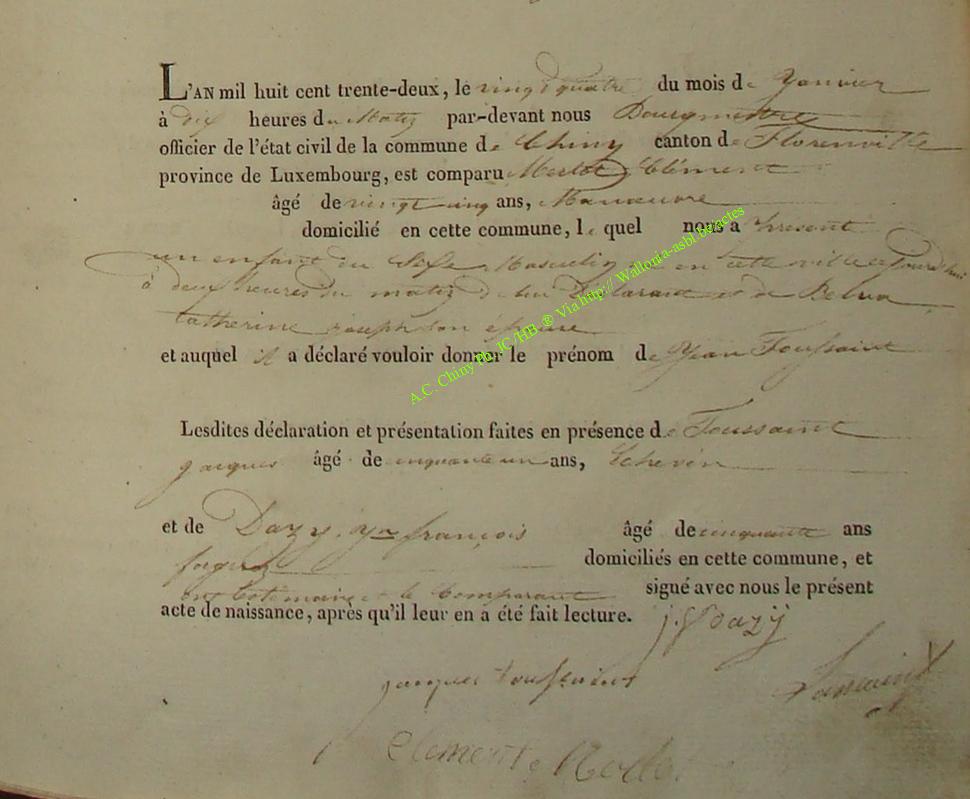 L'AN mil huit cent trente-deux, le vingt quatre du mois de Janvier
à dix heures du Matin par-devant nous Bourgmestre
officier de l'état civil de la commune de Chiny canton de Florenville
province de Luxembourg, est comparu Clément
âgé de vingt cinq ans, Manœuvre
domicilié en cette commune, le quel nous a présenté
un enfant du Sexe Masculin né en cette ville
à deux heures du matin de lui Déclarant et de
Catherine joseph son épouse
et auquel il a déclaré vouloir donner le prénom de Jean Toussaint
Lesdites déclaration et présentation faites en présence de Toussaint
jacques âgé de cinquante un ans, Echevin
et de Dazy. Jn françois âgé de cinquante ans
domiciliés en cette commune, et
ont les témoins et le Comparant signé avec nous le présent
acte de naissance, après qu'il leur en a été fait lecture. j. f Dazÿ
jacques toussaint
Clement
A.C. Chiny Ph. JC/HB ® Via http:// Wallonia-asbl.be/actes